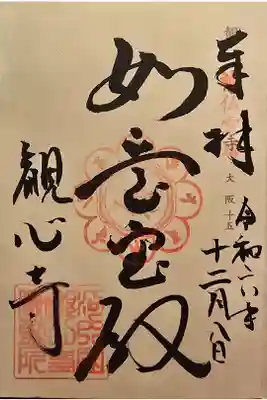 奉拝
大阪十五
令和六年
十二月八日
如意宝殿
観心寺